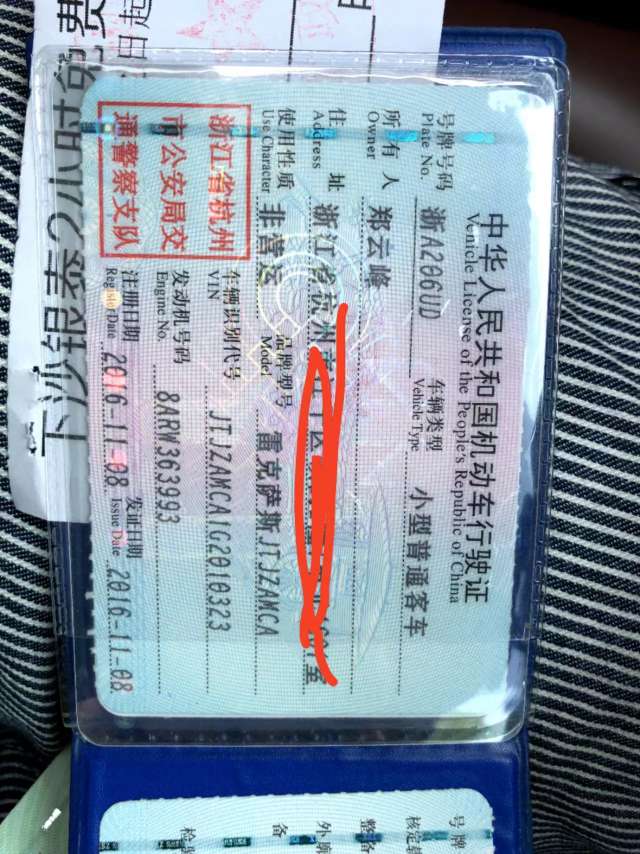 中华人民共和国机动车行驶证
Vehicle License of the People's Republic of China
号牌号码 浙A206UD 车辆类型 小型普通客车
Plate No. Vehicle Type
所有人 郑云峰
Owner
住址 浙江省杭州市 室
Address
使用性质 非营运 品牌型号 雷克萨斯JTJZAMCA
Use Character Model
浙江省杭州
市公安局交
通警察支队
车辆识别代号 JTJZAMCA1G2010323
VIN
发动机号码 8ARW363993
Engine No.
注册日期 2016-11-08 发证日期 2016-11-08
Register Date Issue Date
下沙银泰2小时免费
日起
号牌
核定
整备
外廓
备
检验